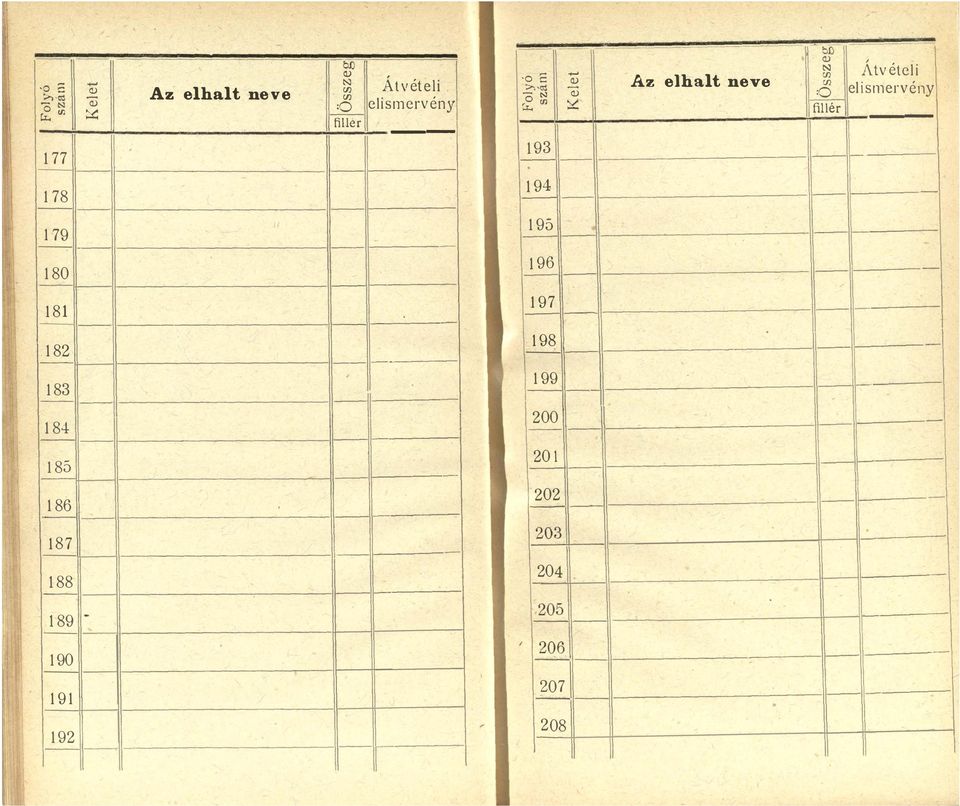 Folyó szám Kelet Az elhalt neve Összeg fillér Átvételi elismervény
177
178
179
180
181
182
183
184
185
186
187
188
189
190
191
192
Folyó szám Kelet Az elhalt neve Összeg fillér Átvételi elismervény
193
194
195
196
197
198
199
200
201
202
203
204
205
206
207
208